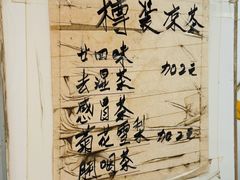 樽装凉茶
廿四味 加2元
去湿茶
感冒茶
菊花雪梨 加2元
胛咽茶